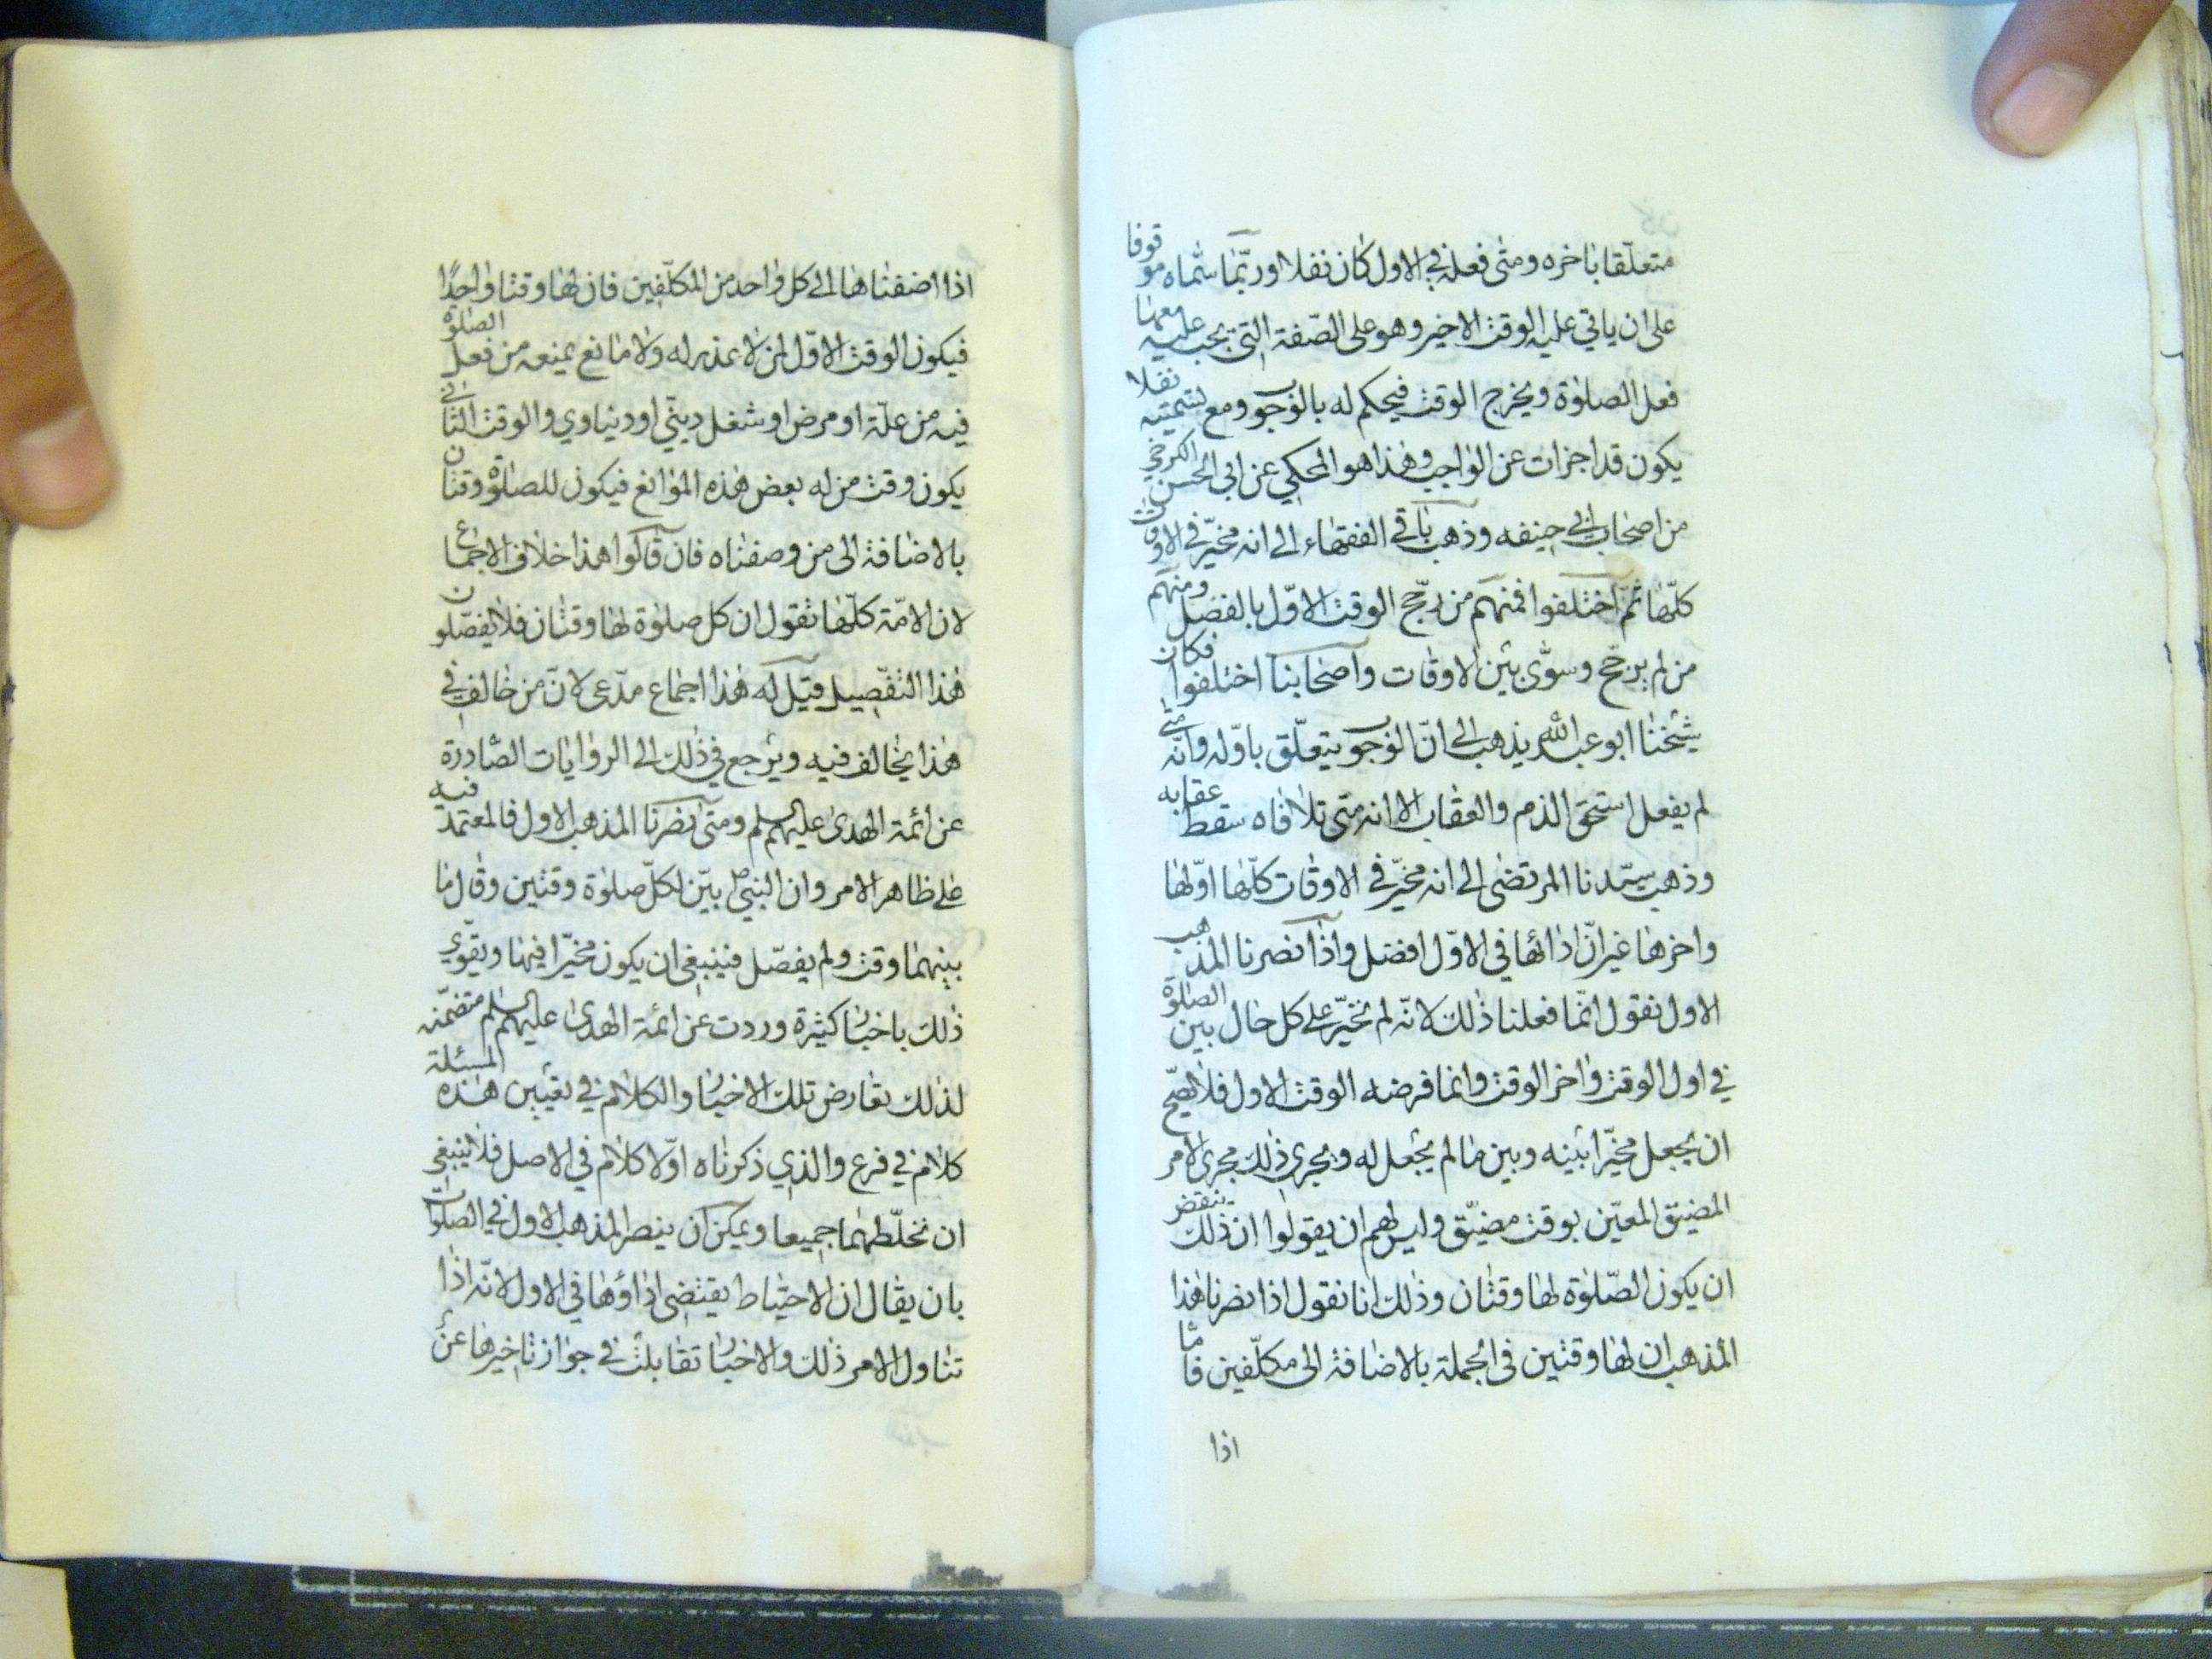 متعلّقا باخره ومتى فعله في الاول كان نفلا وربّما سمّاه موقوفا
على ان ياتي عليه الوقت الاخير وهو على الصّفة التي يجب عليه معها
فعل الصلوة ويخرج الوقت فيحكم له بالوجوب ومع تسميته نفلا
يكون قد اجزات عن الواجب وهذا هو المحكي عن ابي الحسن الكرخي
من اصحاب ابي حنيفه وذهب باقي الفقهاء الى انه مخيّر في الاوقات
كلّها ثمّ اختلفوا فمنهم من رجّح الوقت الاوّل بالفضل ومنهم
من لم يرجّح وسوّى بين الاوقات واصحابنا اختلفوا فكان
شيخنا ابو عبد الله يذهب الى انّ الوجوب يتعلّق باوّله وانّه متى
لم يفعل استحق الذم والعقاب الا انه متى تلافاه سقط عقابه
وذهب سيّدنا المرتضى الى انه مخيّر في الاوقات كلّها اوّلها
واخرها غير انّ ادائها في الاوّل افضل واذا نصرنا المذهب
الاول نقول انّما فعلنا ذلك لانّه لم يخيّر على كل حال بين الصلوة
في اول الوقت واخر الوقت وانما فرضه الوقت الاول فلا يصّح
ان يجعل مخيّرا بينه وبين ما لم يجعل له ويجري ذلك مجرى الامر
المضيّق المعيّن بوقت مضيّق وليس لهم ان يقولوا ان ذلك ينقض
ان يكون الصّلوة لها وقتان وذلك انا نقول اذا نصرنا هذا
المذهب ان لها وقتين في الجملة بالاضافة الى مكلّفين فاما
اذا
اذا اضفناها الى كل واحد من المكلّفين فان لها وقتا واحدًا
فيكون الوقت الاوّل لمن لا عذر له ولا مانع يمنعه من فعل الصلوة
فيه من علّة او مرض او شغل دينّي او دنياوي والوقت الثاني
يكون وقت من له بعض هذه الموانع فيكون للصلوة وقتان
بالاضافة الى من وصفناه فان قالوا هذا خلاف الاجماع
لان الامّة كلّها تقول ان كل صلوة لها وقتان فلا يفصّلون
هذا التفصيل قيل له هذا اجماع مدّعى لانّ من خالف في
هذا يخالف فيه ويرجع في ذلك الى الروايات الصّادرة
عن ائمة الهدى عليهم السلم ومتى نصرنا المذهب الاول فالمعتمد فيه
على ظاهر الامر وان النبي ص بيّن لكلّ صلوة وقتين وقال ما
بينهما وقت ولم يفصّل فينبغي ان يكون مخيّرا فيها ويقوّي
ذلك باخبار كثيرة وردت عن ائمة الهدى عليهم السلم متضمّنه
لذلك تعارض تلك الاخبار والكلام في تعيين هذه المسئلة
كلام في فرع والذي ذكرناه اوّلا كلام في الاصل فلا ينبغي
ان نخلّطهما جميعا ويمكن ان ينصر المذهب الاول في الصلوات
بان يقال ان الاحتياط يقتضي اداؤها في الاول لانّه اذا
تناول الامر ذلك والاخبار تقابلت في جواز تاخيرها عن